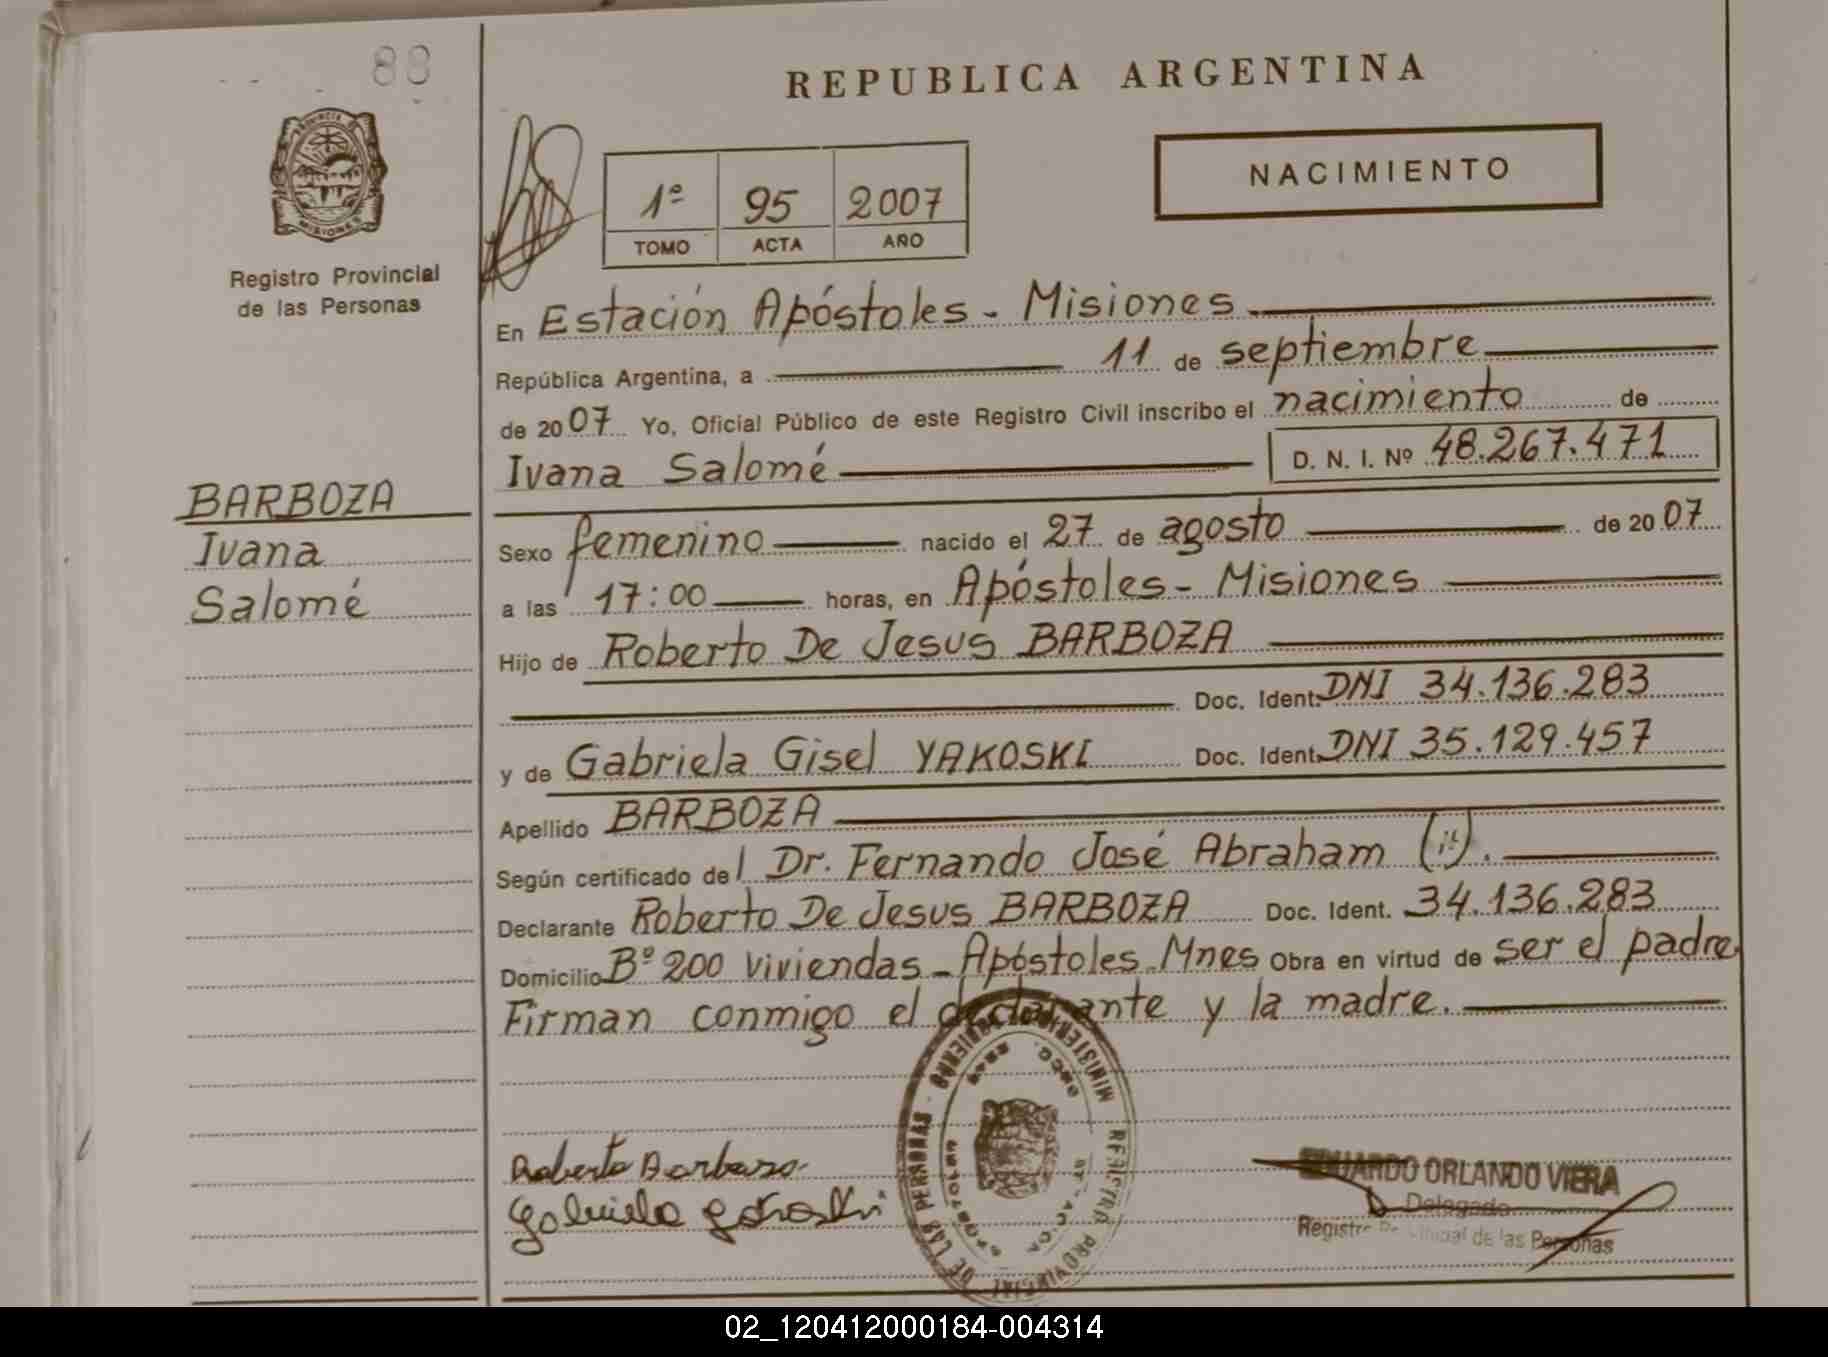 88
REPUBLICA ARGENTINA
NACIMIENTO
1º 95 2007
TOMO ACTA AÑO
Registro Provincial
de las Personas
En Estación Apóstoles - Misiones
República Argentina, a 11 de septiembre
de 2007 Yo, Oficial Público de este Registro Civil inscribo el nacimiento de
Ivana Salomé D. N. I. Nº 48.267.471
BARBOZA
Ivana
Salomé
Sexo femenino nacido el 27 de agosto de 2007
a las 17:00 horas, en Apóstoles - Misiones
Hijo de Roberto De Jesus BARBOZA
Doc. Ident. DNI 34.136.283
y de Gabriela Gisel YAKOSKI Doc. Ident. DNI 35.129.457
Apellido BARBOZA
Según certificado del Dr. Fernando José Abraham (it).
Declarante Roberto De Jesus BARBOZA Doc. Ident. 34.136.283
Domicilio Bº 200 Viviendas - Apóstoles Mnes Obra en virtud de ser el padre.
Firman conmigo el declarante y la madre.
Roberto Barboza
Gabriela Yakoski
EDUARDO ORLANDO VIERA
Delegado
Registro Provincial de las Personas
REGISTRO PROVINCIAL DE LAS PERSONAS
02_120412000184-004314